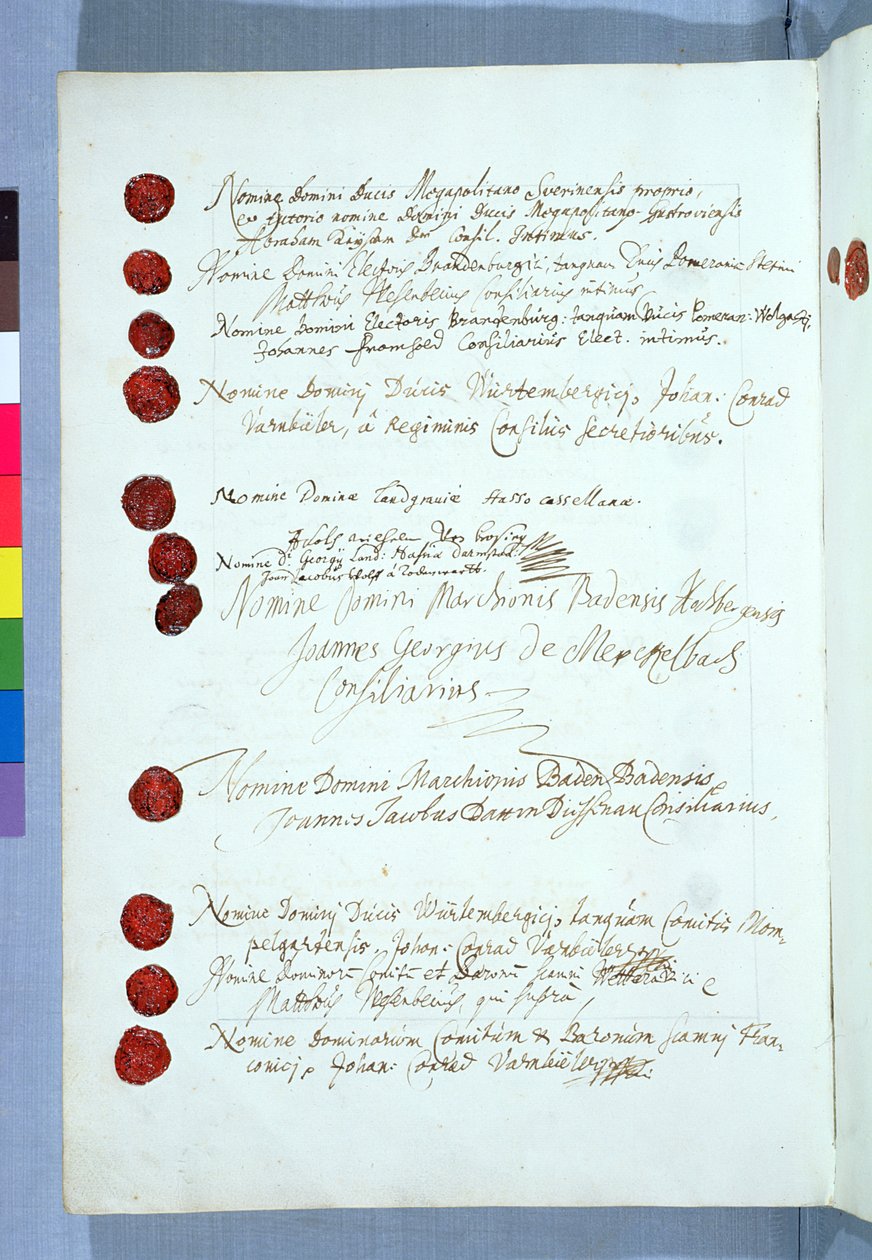 Nomine Domini Ducis Megapolitano Sverinensis proprio,
et tutorio nomine Domini Ducis Megapolitano-Gustroviensis
Abraham Keyser Consil. Intimus.
Nomine Domini Electoris Brandenburgici, tanquam Ducis Pomeraniæ Stetini
Matthæus Wesenbecius Consiliarius intimus
Nomine Domini Electoris Brandenburg: tanquam Ducis Pomeran: Wolgast;
Johannes Fromhold Consiliarius Elect. intimus.
Nomine Dominj Ducis Würtembergicj, Johan: Conrad
Varnbüler, â Regiminis Consiliis secretioribus.
Nomine Dominæ Landgraviæ Hasso cassellanæ.
Adolf Wilhelm Von Krosigk
Nomine Dn: Georgij Land: Hassiæ Darmstad:
Joan Jacobus Wolff â Todenwartt.
Nomine Domini Marchionis Badensis Hachbergensis
Joannes Georgius de Merckelbach
Consiliarius
Nomine Domini Marchionis Baden Badensis
Joannes Jacobus Datt in Dieffenau Consiliarius,
Nomine Dominj Ducis Würtembergicj, tanquam Comitis Mom-
pelgartensis, Johan: Conrad Varnbüler
Nomine Dominorū Comitū et Baronū scamni Wetteravici
Matthæus Wesenbecius, qui supra
Nomine Dominorum Comitum & Baronum scamnj Fran-
conicj, Johan: Conrad Varnbüler